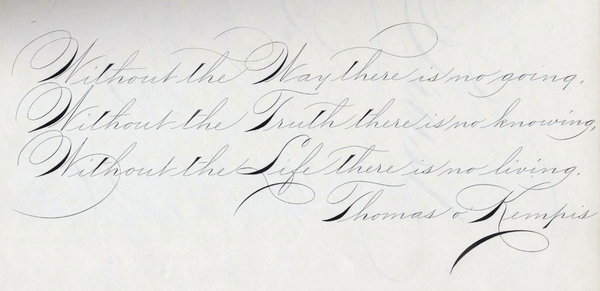 Without the Way there is no going,
Without the Truth there is no knowing,
Without the Life there is no living.
Thomas a' Kempis